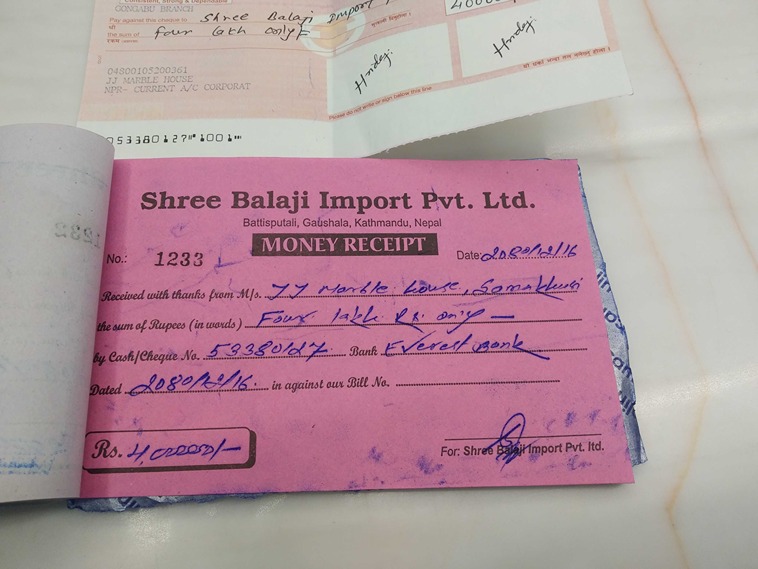 Consistent, Strong & Dependable
GONGABU BRANCH
Pay against this cheque to Shree Balaji Import
श्री
the sum of four lakh only
रकम
04800105200361
JJ MARBLE HOUSE
NPR- CURRENT A/C CORPORAT
Please do not write or sign below this line
053380127 1001
Shree Balaji Import Pvt. Ltd.
Battisputali, Gaushala, Kathmandu, Nepal
MONEY RECEIPT
No.: 1233 Date: 2080/12/16
Received with thanks from M/s. JJ Marble house, Samakhusi
the sum of Rupees (in words) Four lakh Rs. only —
by Cash/Cheque No. 53380127 Bank Everest Bank
Dated 2080/12/16 in against our Bill No.
Rs. 4,00000/-
For: Shree Balaji Import Pvt. ltd.